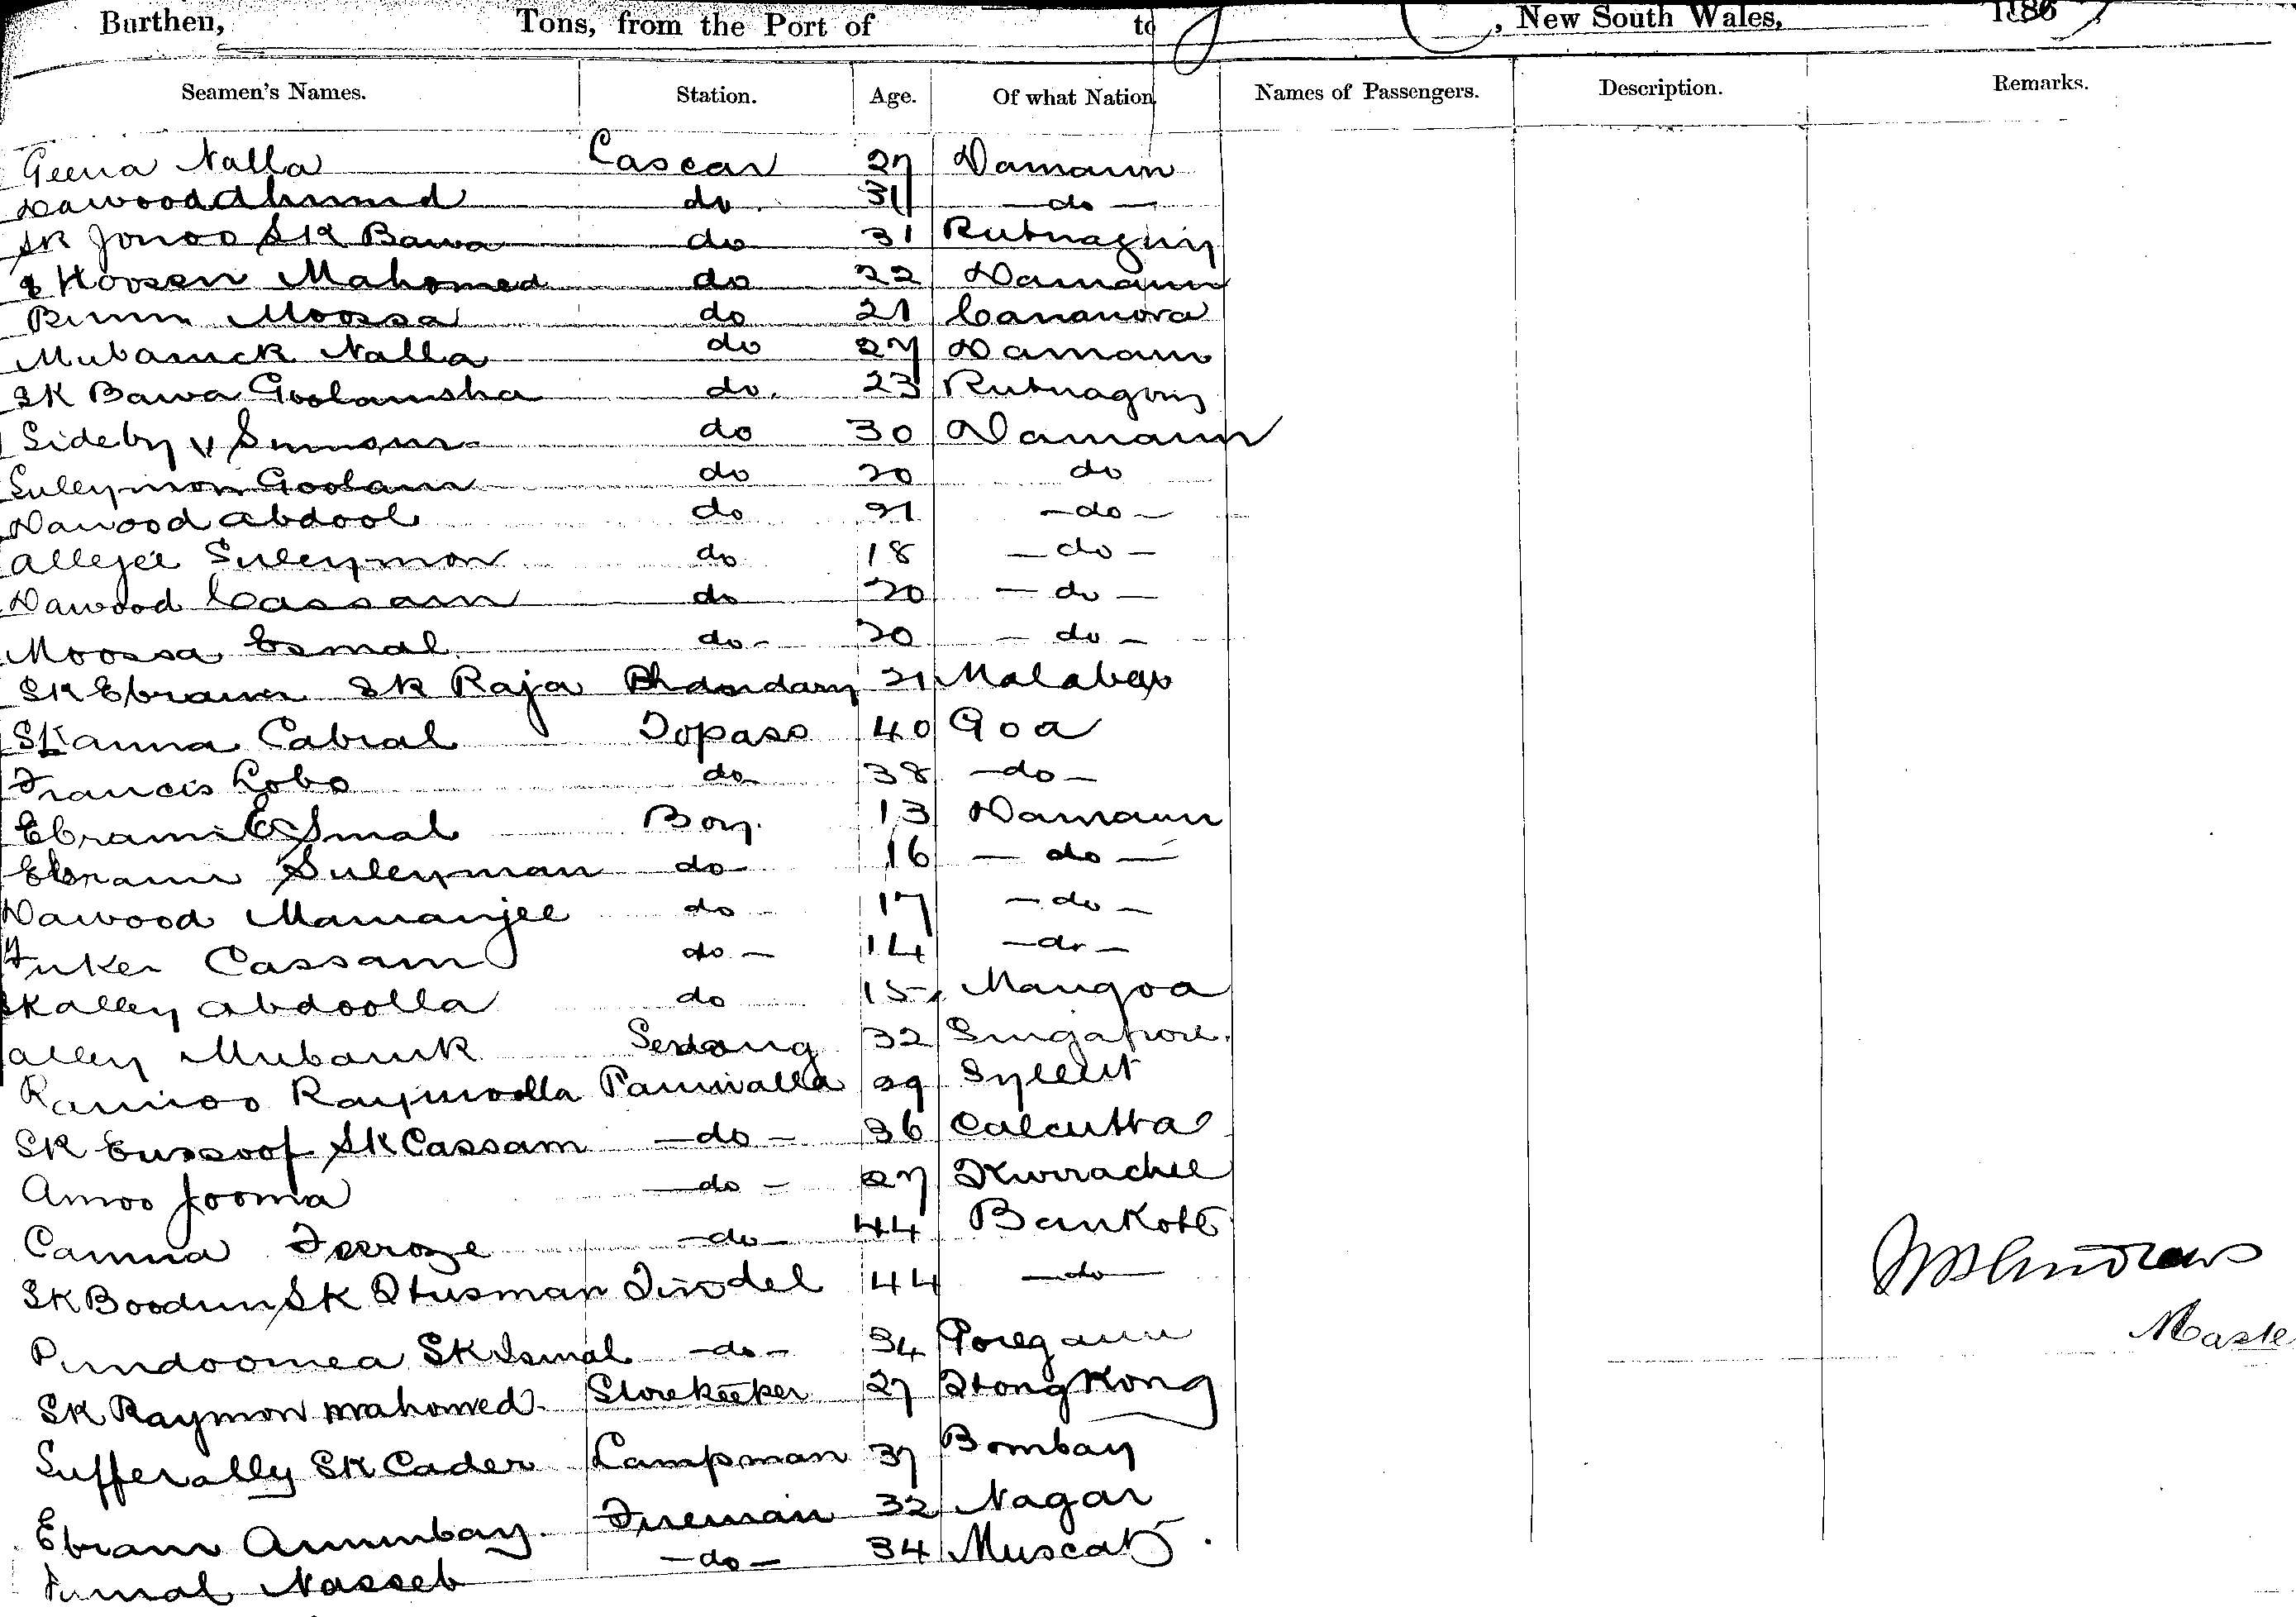 Burthen, Tons, from the Port of to , New South Wales, 188
Seamen's Names. Station. Age. Of what Nation Names of Passengers. Description. Remarks.
Geena Nalla Lascar 27 Damaun
Dawood Ahmud do 31 do
SK Jonoo SK Bawa do 31 Rutnagiry
Hoosen Mahomed do 22 Damaun
Moossa do 21 Cananora
Mubaruck Nalla do 27 Damaun
SK Bawa Goolamsha do. 23 Rutnagiry
Sideby do 30 Damaun
Suleymon Goolam do 20 do
Dawood Abdool do 21 -do-
Allejee Suleymon do 18 -do-
Dawood Cassam do 20 -do-
Moossa Esmal do- 20 -do-
SK Ebram SK Raja Bhandary 21 Malabar
Cabral Topass 40 Goa
Francis Lobo do 38 -do-
Ebram Esmal Boy. 13 Damaun
Ebram Suleyman do 16 -do-
Dawood Mamanjee do 17 -do-
Cassam do- 14 -do-
SK Alley Abdoolla do 15 Mangoa
Alley Mubaruk Serang 32 Singapore.
Ramjoo Raymoolla Paniwalla 29 Syleut
SK Eussoof SK Cassam -do- 36 Calcutta
Amoo Jooma -do- 27 Kurrachee
Camna Feroze -do- 44 Bankote
SK Boodun SK Husman Tindel 44 -do-
Pundoomea SK Ismal -do- 34 Goregaum
SK Raymon Mahomed Storekeeper 27 Hong Kong
Sufferally SK Cader Lampman 37 Bombay
Ebram Amumbay. Fireman 32 Nagar
Nasseb -do- 34 Muscat
Andrews
Maste